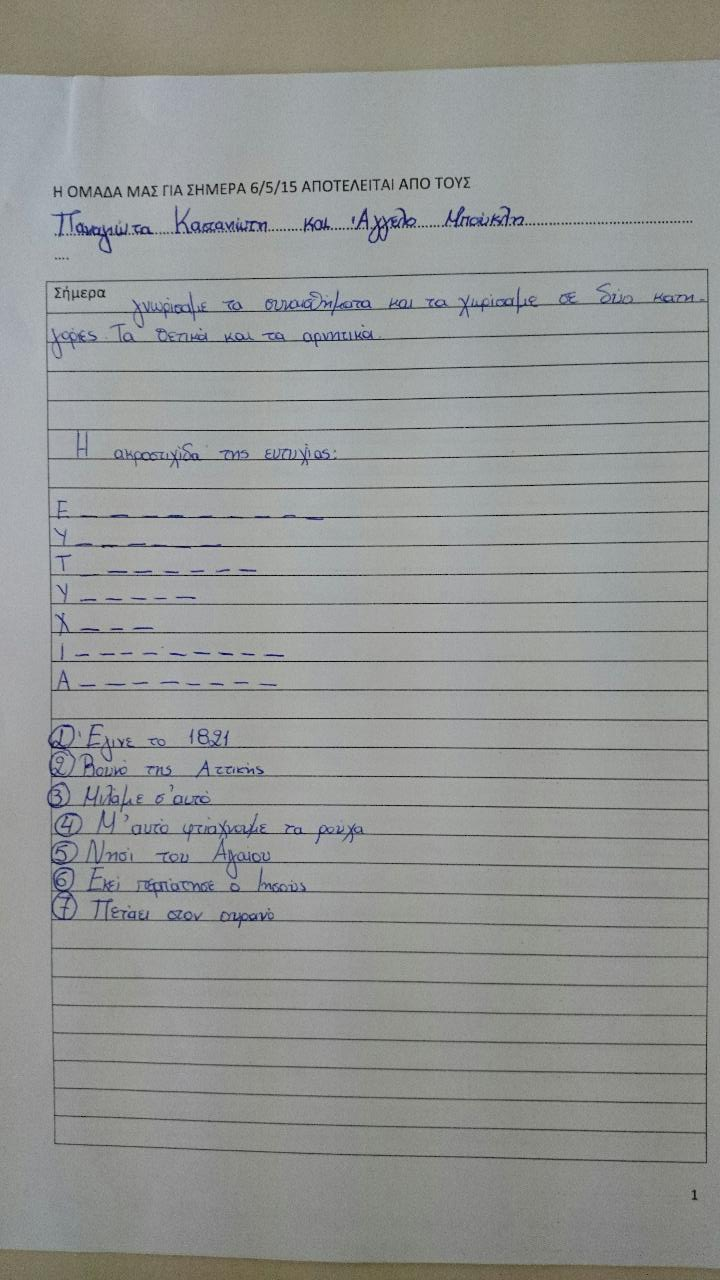 Η ΟΜΑΔΑ ΜΑΣ ΓΙΑ ΣΗΜΕΡΑ 6/5/15 ΑΠΟΤΕΛΕΙΤΑΙ ΑΠΟ ΤΟΥΣ
Παναγιώτα Καπανιώτη και Άγγελο Μπούκλη
....
Σήμερα γνωρίσαμε τα συναισθήματα και τα χωρίσαμε σε δύο κατη-
γορίες. Τα θετικά και τα αρνητικά.
Η ακροστιχίδα της ευτυχίας:
Ε _ _ _ _ _ _ _ _ _
Υ _ _ _ _ _ _
Τ _ _ _ _ _ _ _
Υ _ _ _ _ _
Χ _ _ _
Ι _ _ _ _ _ _ _ _ _
Α _ _ _ _ _ _ _ _
① Έγινε το 1821
② Βουνό της Αττικής
③ Μιλάμε σ'αυτό
④ Μ'αυτό φτιάχνουμε τα ρούχα
⑤ Νησί του Αγαίου
⑥ Εκεί περπάτησε ο Ιησούς
⑦ Πετάει στον ουρανό
1